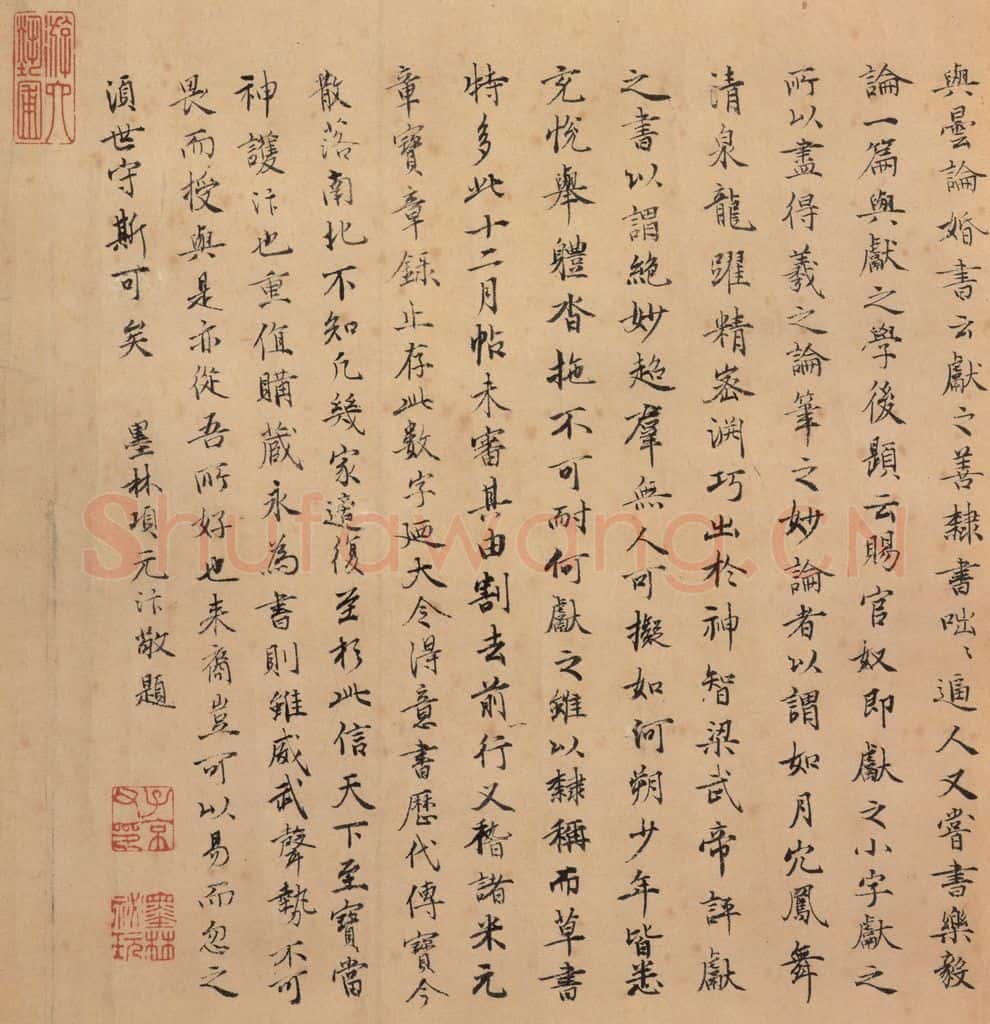 與曇論婚書云獻之善隸書咄〻逼人又嘗書樂毅
論一篇與獻之學後題云賜官奴即獻之小字獻之
所以盡得羲之論筆之妙論者以謂如月穴鳳舞
清泉龍躍精密淵巧出於神智梁武帝評獻
之書以謂絕妙超羣無人可擬如河朔少年皆悉
充悅舉軆沓拖不可耐何獻之雖以隸稱而草書
特多此十二月帖未審其由割去前行又稽諸米元
章寶章錄止存此數字廼大令得意書歷代傳寶今
散落南北不知凡幾家適復至於此信天下至寶當
神護汴也重值購藏永為書則雖威武聲勢不可
畏而授與是亦從吾所好也来裔豈可以易而忽之
須世守斯可矣 墨林項元汴敬題
子京父印
墨林祕玩
Shufawang.CN